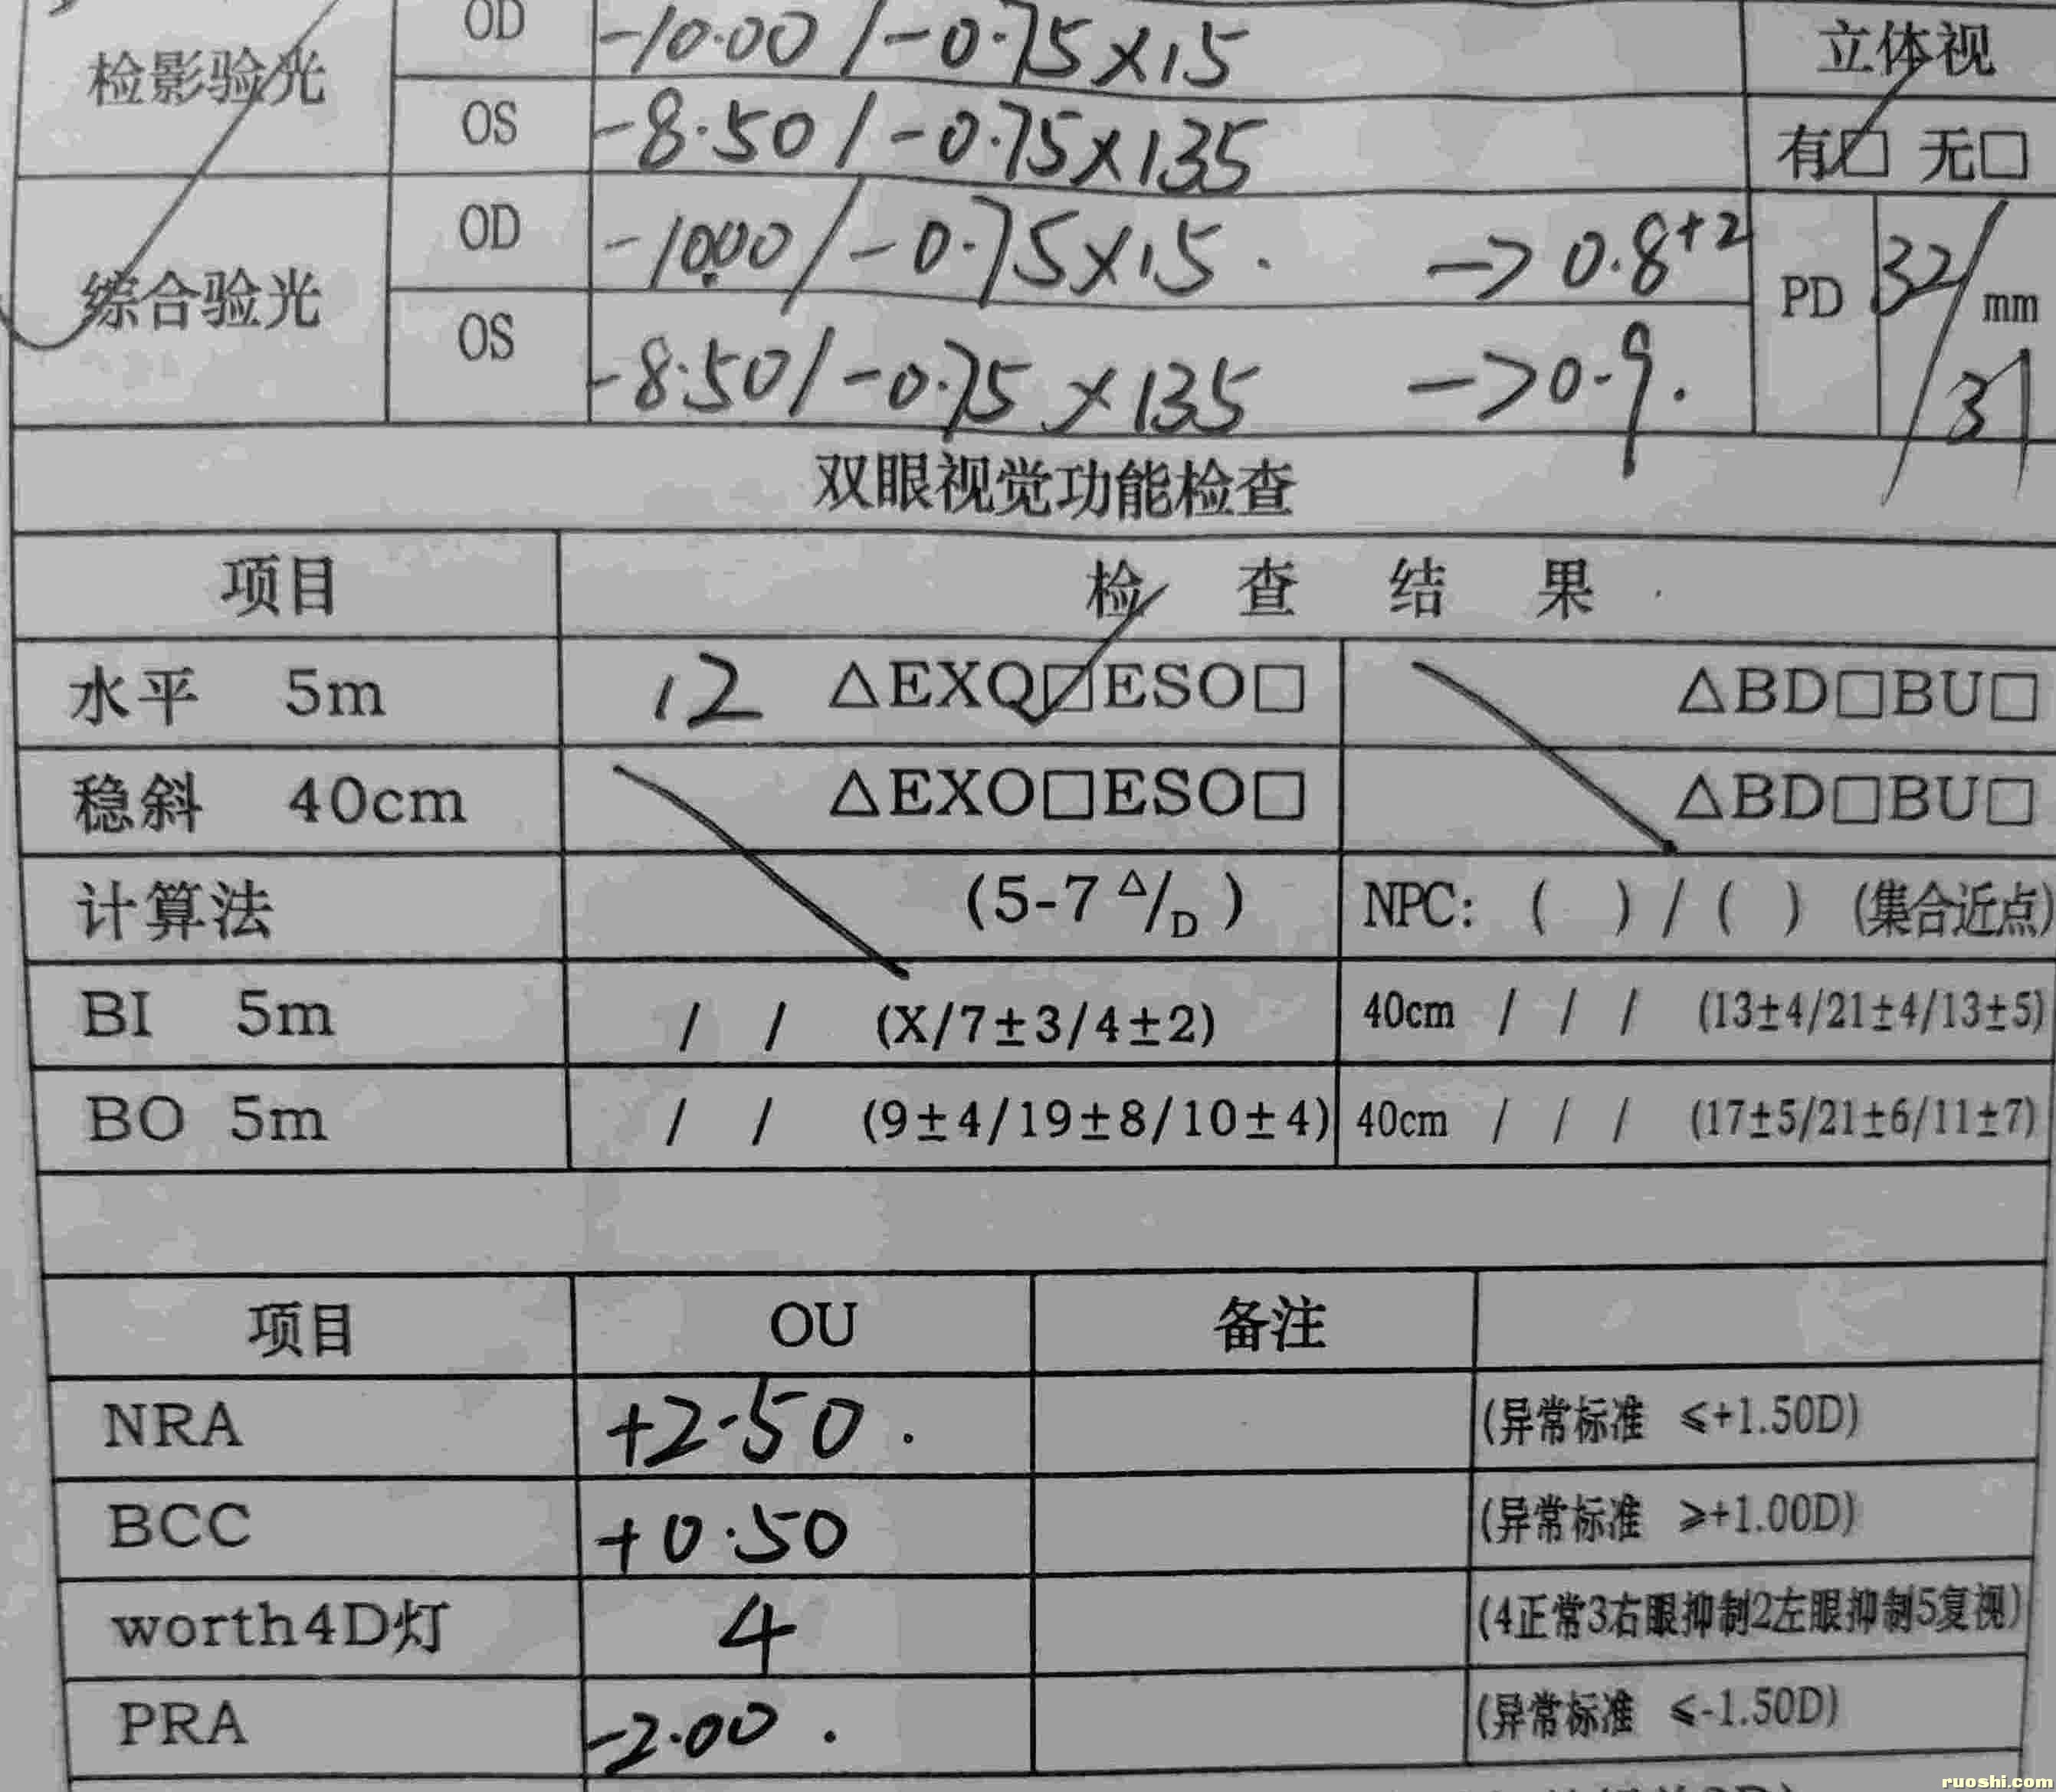 检影验光 OD -10.00/-0.75×15 立体视
OS -8.50/-0.75×135 有☑ 无□
综合验光 OD -10.00/-0.75×15. →0.8+2 PD 32/31 mm
OS -8.50/-0.75×135 →0.9.
双眼视觉功能检查
项目 检 查 结 果
水平 5m 12 △EXO☑ESO□ △BD□BU□
稳斜 40cm △EXO□ESO□ △BD□BU□
计算法 (5-7△/D) NPC: ( ) / ( ) (集合近点)
BI 5m / / (X/7±3/4±2) 40cm / / / (13±4/21±4/13±5)
BO 5m / / (9±4/19±8/10±4) 40cm / / / (17±5/21±6/11±7)
项目 OU 备注
NRA +2.50. (异常标准 ≤+1.50D)
BCC +0.50 (异常标准 ≥+1.00D)
worth4D灯 4 (4正常3右眼抑制2左眼抑制5复视)
PRA -2.00. (异常标准 ≤-1.50D)
ruoshi.com